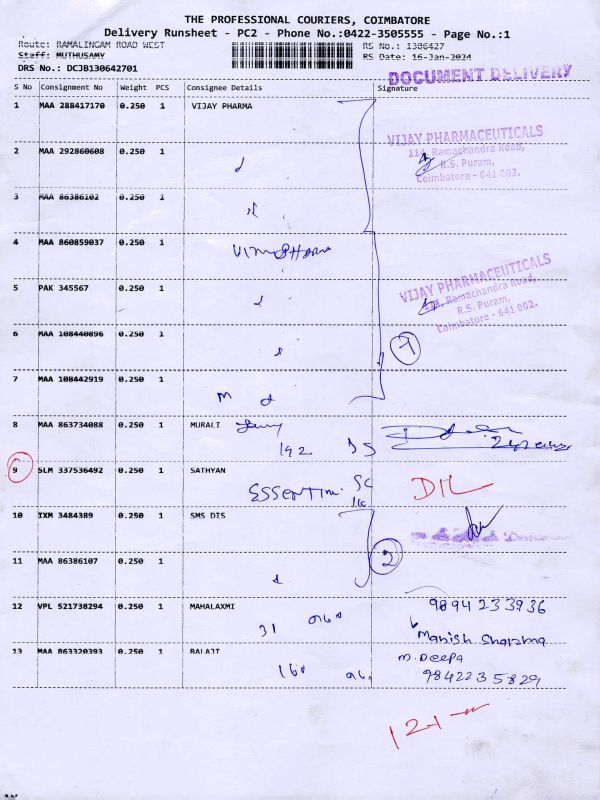 THE PROFESSIONAL COURIERS, COIMBATORE
Delivery Runsheet - PC2 - Phone No.:0422-3505555 - Page No.:1
Route: RAMALINGAM ROAD WEST RS No.: 1306427
Staff: MUTHUSAMY RS Date: 16-Jan-2024
DRS No.: DCJB130642701
DOCUMENT DELIVERY
S No Consignment No Weight PCS Consignee Details Signature
1 MAA 288417170 0.250 1 VIJAY PHARMA
VIJAY PHARMACEUTICALS
Ramachandra Road,
R.S. Puram,
Coimbatore - 641 002.
2 MAA 292860608 0.250 1
3 MAA 86386102 0.250 1
4 MAA 860859037 0.250 1
VIJAY PHARMACEUTICALS
Ramachandra Road,
R.S. Puram,
Coimbatore - 641 002.
5 PAK 345567 0.250 1
6 MAA 108440896 0.250 1
1
7 MAA 108442919 0.250 1
8 MAA 863734088 0.250 1 MURALI
192
9 SLM 337536492 0.250 1 SATHYAN
DIL
10 IXM 3484389 0.250 1 SMS DIS
11 MAA 86386107 0.250 1
2
12 VPL 521738294 0.250 1 MAHALAXMI 9894233936
31
Manish Sharma
13 MAA 863320393 0.250 1 BALAJI M. Deepa
160 9842235829